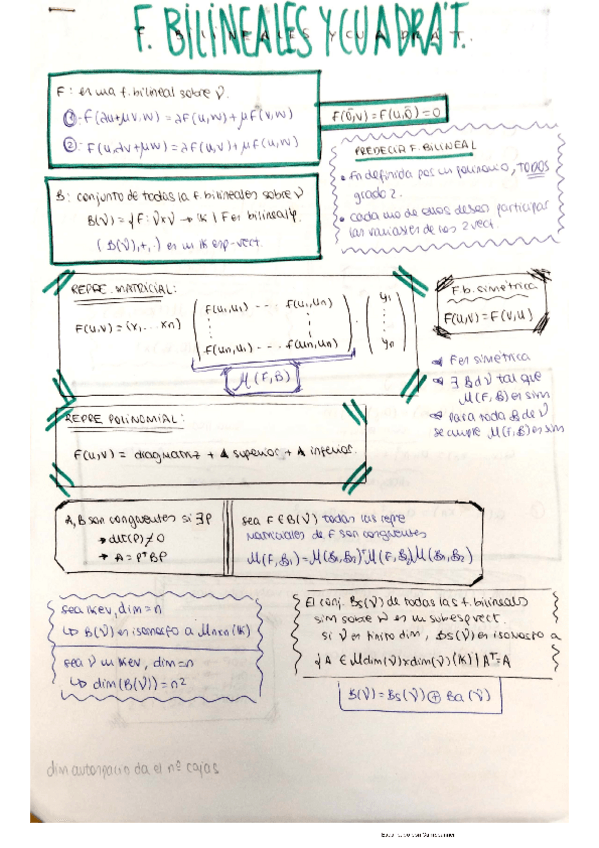 F. BILINEALES Y CUADRAT.
F: es una f. bilineal sobre V.
①: F(λu+μv,w) = λF(u,w)+μF(v,w)
②: F(u,λv+μw) = λF(u,v)+μF(u,w)
F(0̄,v) = F(u,0̄) = 0
PREDECIR F. BILINEAL
• En definida por un polinomio, TODOS
grado 2.
• cada uno de ellos deben participar
las variables de los 2 vect.
B: conjunto de todas la f. bilineales sobre V
B(V) = {F: V×V → K | F es bilineal}.
(B(V),+,·) es un K esp-vect.
REPRE. MATRICIAL:
F(u,v) = (x₁ ... xn) ( f(u₁,u₁) --- f(u₁,un)
f(un,u₁) --- f(un,un) ) · ( y₁
yn )
M(F,B)
F b. simétrica
F(u,v) = F(v,u)
F es simétrica
∃ B d V tal que
M(F,B) es sim
para toda B de V
se cumple M(F,B) es sim
REPRE POLINOMIAL:
F(u,v) = diag matriz + Δ superior + Δ inferior.
A, B son congruentes si ∃P
→ det(P) ≠ 0
→ A = PᵀBP
sea F ∈ B(V) todas las repre
matriciales de F son congruentes
M(F,B₁) = M(B₁,B₂)ᵀ M(F,B₂) M(B₁,B₂)
sea V K ev, dim = n
↳ B(V) es isomorfo a Mnxn(K)
sea V un K ev, dim = n
↳ dim(B(V)) = n²
El conj. Bs(V) de todas las f. bilineales
sim sobre V es un subesp vect.
si V es finito dim, Bs(V) es isomorfo a
{A ∈ Mdim(V)xdim(V)(K) | Aᵀ = A
B(V) = Bs(V) ⊕ Ba(V)
dim autoespacio da el nº cajas
Escaneado con CamScanner